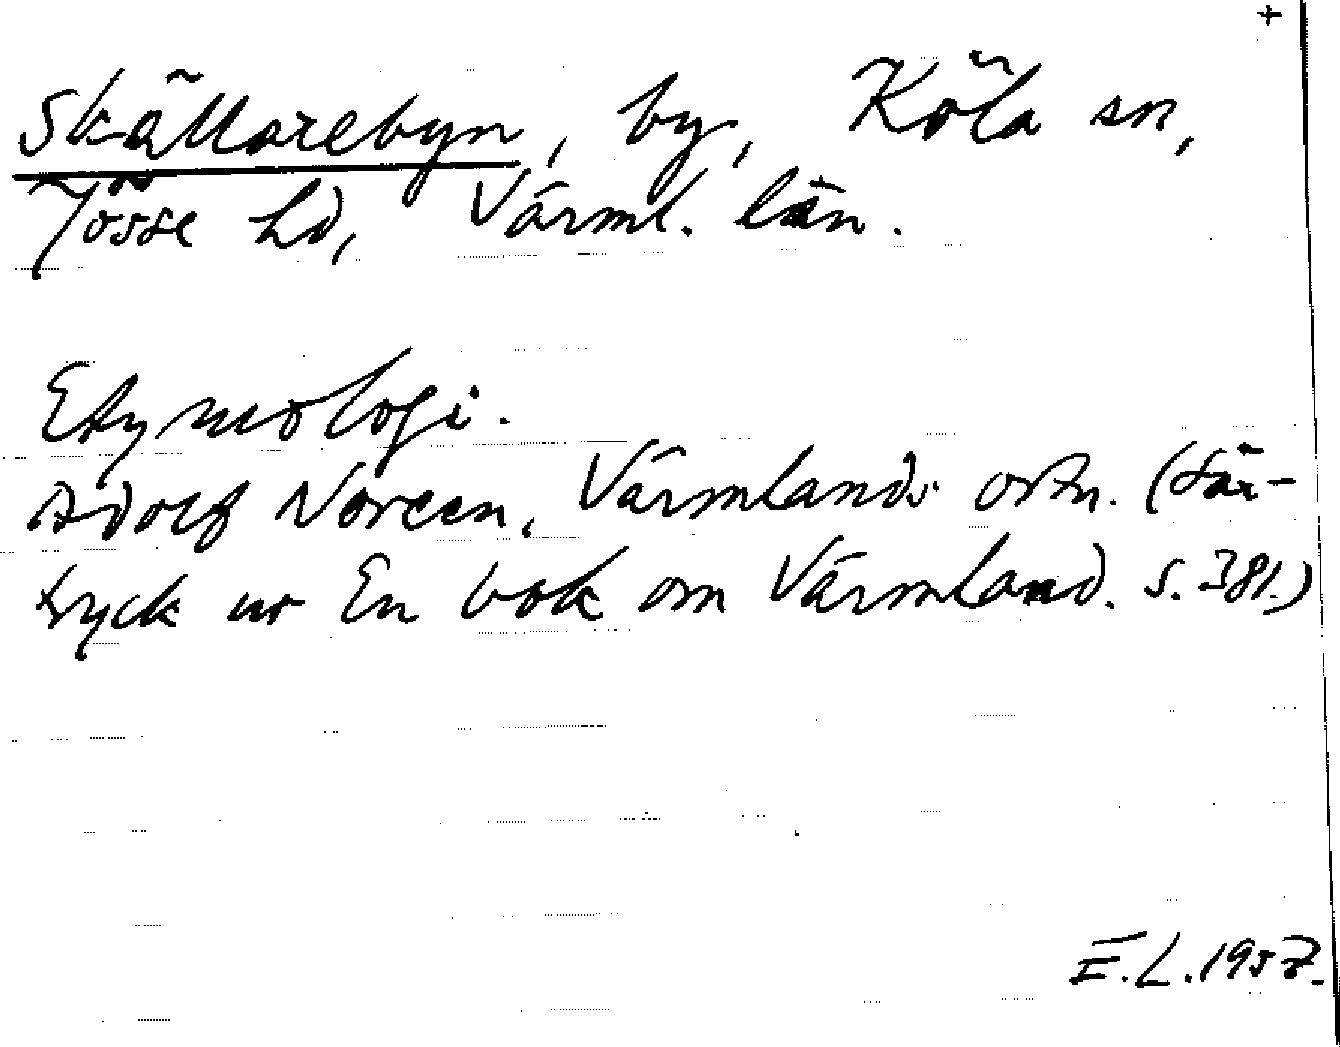 +
Skällarebyn, by, Köla sn,
Jösse hd, Värml. län.
Etymologi.
Adolf Noreen, Värmlands ortn. (Sär-
tryck ur En bok om Värmland. s. 381.)
E.L. 1957.